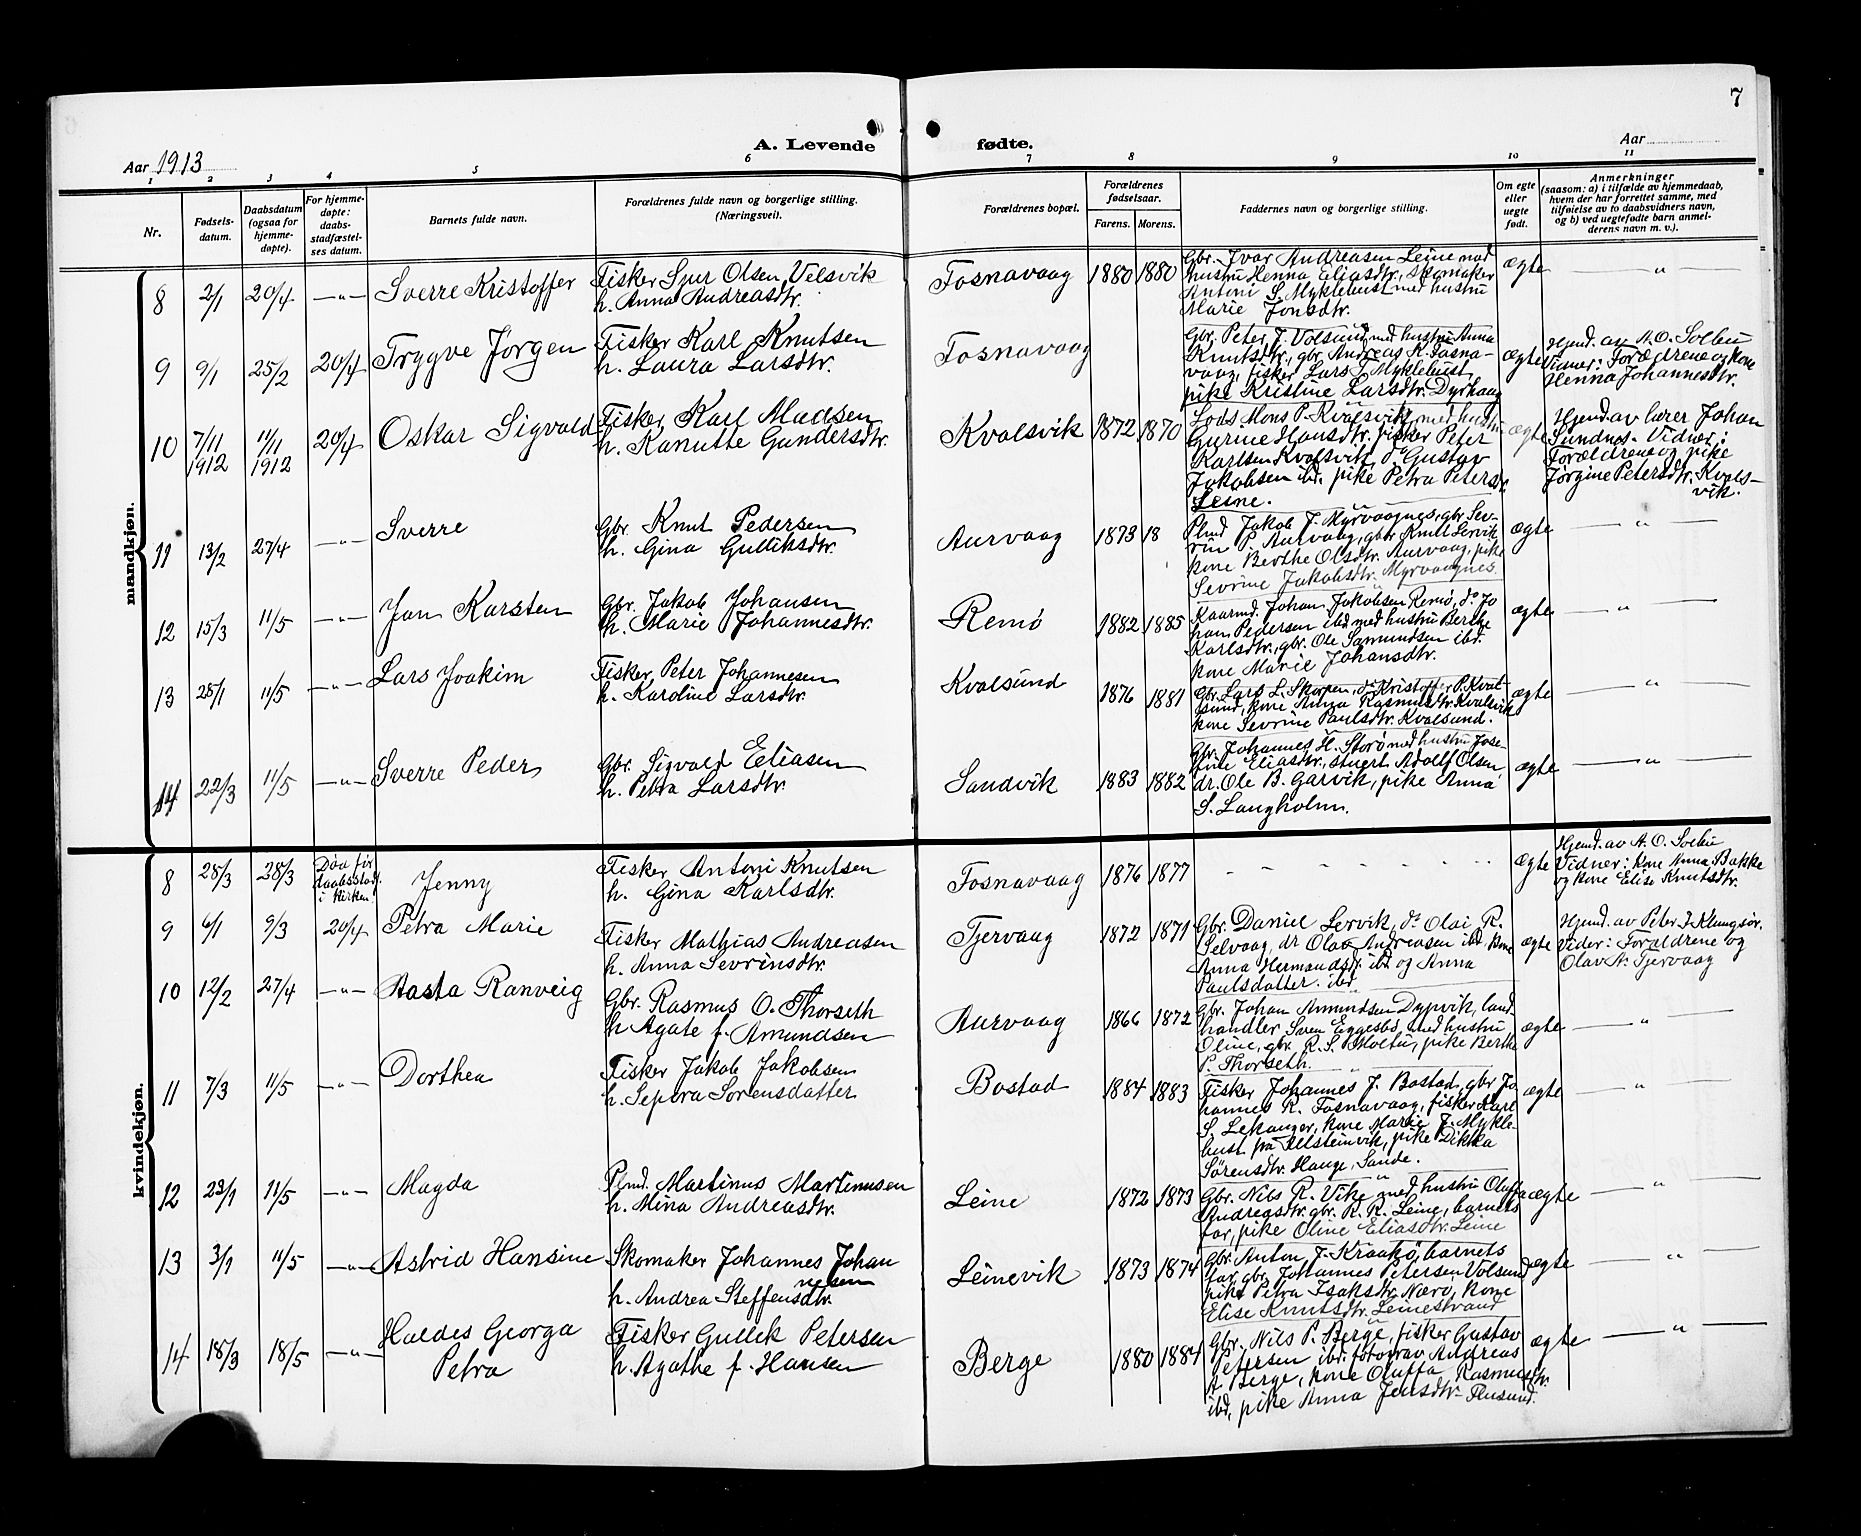 7
A. Levende fødte.
Aar 1913
Aar
1 2 3 4 5 6 7 8 9 10 11
Nr.
Fødsels-
datum.
Daabsdatum
(ogsaa for
hjemme-
døpte).
For hjemme-
døpte:
daabs-
stadfæstel-
ses datum.
Barnets fulde navn.
Forældrenes fulde navn og borgerlige stilling.
(Næringsvei).
Forældrenes bopæl.
Forældrenes
fødselsaar.
Farens. Morens.
Faddernes navn og borgerlige stilling.
Om egte
eller
uegte
født.
Anmerkninger
(saasom: a) i tilfælde av hjemmedaab,
hvem der har forrettet samme, med
tilføielse av to daabsvidners navn,
og b) ved uegtefødte barn anmel-
derens navn m. v.).
mandkjøn.
8 2/1 20/4 —"— Sverre Kristoffer
Fisker Sjur Olsen Velsvik
h. Anna Andreasdtr.
Fosnavaag 1880 1880
Gbr. Ivar Andreasen Leine med
hustru Henna Eliasdtr., skomaker
Antoni S. Myklebust med hustru
Marie Jonsdtr.
ægte — " —
9 9/1 25/2 20/4 Trygve Jørgen
Fisker Karl Knutsen
h. Laura Larsdtr.
Fosnavaag
Gbr. Peter J. Volsund med hustru Anna
Knutsdtr., gbr. Andreas K. Fosna-
vaag, fisker Lars J. Myklebust,
pike Kristine Larsdtr. Dyrhaug
ægte
Hjemd. av A. O. Solbu
Vidner: Forældrene og kone
Henna Johannesdtr.
10 7/11 1912 11/11 1912 20/4 Oskar Sigvald
Fisker Karl Madsen
h. Kanutte Gundersdtr.
Kvalsvik 1872 1870
Lods Mons P. Kvalsvik med hustru
Gurine Hansdtr. fisker Peter
Karlsen Kvalsvik, do Gustav
Jakobsen ibd. pike Petra Petersdtr.
Leine.
ægte
Hjemd. av lærer Johan
Sundnes. Vidner:
Forældrene og pike
Jørgine Petersdtr. Kvals-
vik.
11 13/2 27/4 —"— Sverre
Gbr. Knut Pedersen
h. Gina Gulliksdtr.
Aurvaag 1873 18
Plmd Jakob J. Myrvaagnes, gbr Sev-
rin P. Aurvaag, gbr Knut Lervik
kone Berthe Olsdtr. Aurvaag, pike
Sevrine Jakobsdtr. Myrvaagnes.
ægte — " —
12 15/3 11/5 —"— Jan Karsten
Gbr. Jakob Johansen
h. Marie Johannesdtr.
Remø 1882 1885
Kaarmd. Johan Jakobsen Remø, do Jo
han Pedersen ibd med hustru Berthe
Karlsdtr., gbr. Ole Samundsen ibd.
kone Marie Johansdtr.
ægte — " —
13 25/1 11/5 —"— Lars Joakim
Fisker Peter Johannesen
h. Karoline Larsdtr.
Kvalsund 1876 1881
Gbr. Lars L. Skorpen, do Kristoffer P. Kval-
sund, kone Anna Rasmusdtr. Kvalsvik
kone Sevrine Paulsdtr. Kvalsund.
ægte — " —
14 22/3 11/5 —"— Sverre Peder
Gbr. Sigvald Eliasen
h. Petra Larsdtr.
Sandvik 1883 1882
Gbr. Johannes H. Storø med hustru Jose-
fine Eliasdtr., stuert Adolf Olsen,
dr. Ole B. Garvik, pike Anna
S. Langholm.
ægte — " —
kvindekjøn.
8 28/3 28/3
Død før
daabsstadf.
i kirken!
Jenny
Fisker Antoni Knutsen
h. Gina Karlsdtr.
Fosnavaag 1876 1877 - - - - - - -
ægte
Hjemd. av A. O. Solbu
Vidner: kone Anna Bakke
og kone Elise Knutsdtr.
9 6/1 9/3 20/4 Petra Marie
Fisker Mathias Andreasen
h. Anna Sevrinsdtr.
Tjervaag 1872 1871
Gbr. Daniel Lervik, do Olai R.
Selvaag, dr Olav Andreasen ibd. kone
Anna Hermandsdtr. ibd og Anna
Paulsdatter. ibd
ægte
Hjemd. av Peter J. Klungsør.
Vidner: Forældrene og
Olav A. Tjervaag
10 12/2 27/4 —"— Aasta Ranveig
Gbr. Rasmus O. Thorseth
h Agate f. Amundsen
Aurvaag 1866 1872
Gbr. Johan Amundsen Dypvik, land-
handler Sven Eggesbø med hustru
Oline, gbr. R. S. Moltu, pike Berthe
P. Thorseth.
ægte — " —
11 7/3 11/5 —"— Dorthea
Fisker Jakob Jakobsen
h. Sepora Sørensdatter
Bostad 1884 1883
Fisker Johannes J. Bostad, gbr Jo-
hannes R. Fosnavaag, fisker Karl
S. Lekanger, kone Marie J. Mykle-
bust fra Ulsteinvik, pike Dikka
Sørensdtr. Hauge, Sande.
ægte — " —
12 23/1 11/5 —"— Magda
Plmd. Martinus Martinusen
h. Mina Andreasdtr.
Leine 1872 1873
Gbr. Nils R. Vike med hustru Oluffa
Andreasdtr. gbr. R. R. Leine, barnets
far, pike Oline Eliasdtr. Leine
ægte — " —
13 3/1 11/5 —"— Astrid Hansine
Skomaker Johannes Johan
nesen
h. Andrea Steffensdtr.
Leinevik 1873 1874
Gbr. Anton J. Kraakø, barnets
far, gbr. Johannes Petersen Volsund
pike Petra Isaksdtr. Nærø, kone
Elise Knutsdtr. Leinestrand
ægte — " —
14 18/3 18/5 —"— Haldis Georga
Petra
Fisker Gullik Petersen
h. Agathe f. Hansen
Berge 1880 1884
Gbr. Nils P. Berge, fisker Gustav
Petersen ibd. fotograv Andreas
A. Berge, kone Oluffa Rasmusdtr.
ibd, pike Anna Jensdtr.
ægte — " —